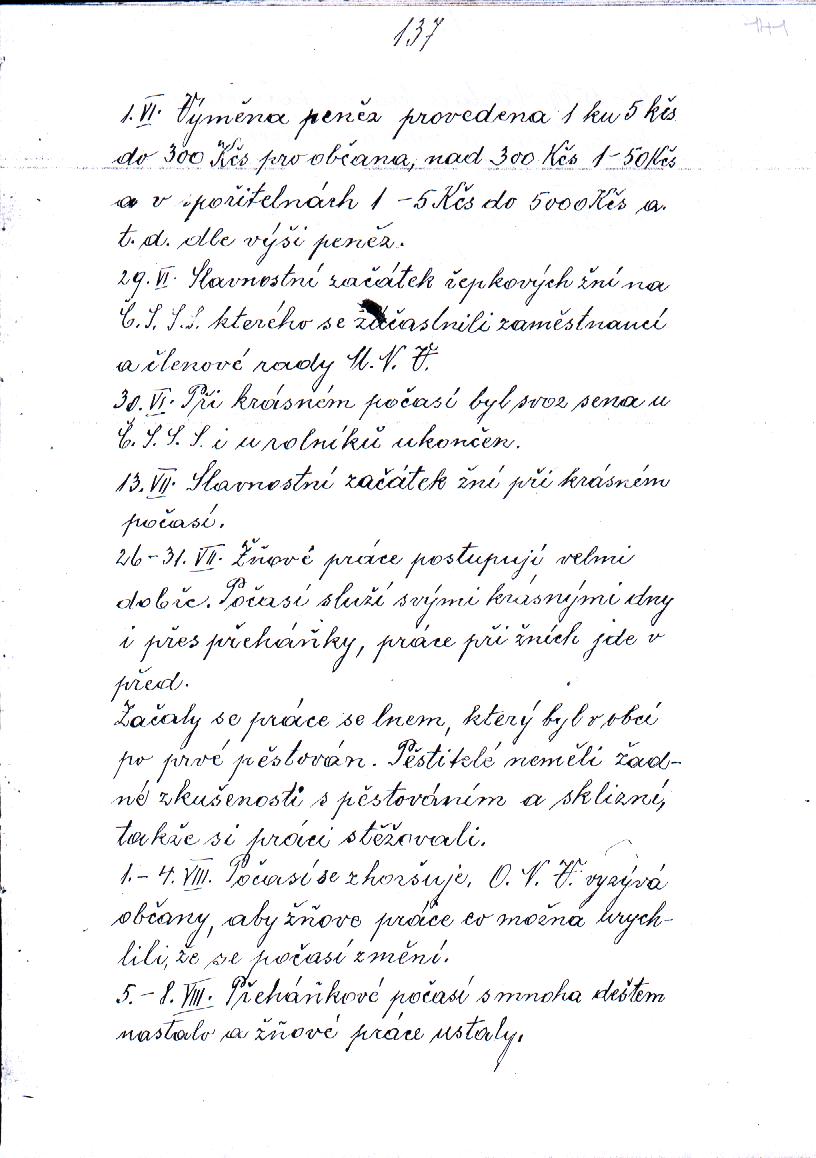 137
1.VI. Výměna peněz provedena 1 ku 5 kčs
do 300 Kčs pro občana, nad 300 Kčs 1-50Kčs
a v spořitelnách 1-5Kčs do 5000Kčs a.
t.d. dle výši peněz.
29.VI. Slavnostní začátek řepkových žní na
Č.S.S.S. kterého se začastnili zaměstnanci
a členové rady M.N.V.
30.VI. Při krásném počasí byl svoz sena u
Č.S.S.S. i u rolníků ukončen.
13.VII. Slavnostní začátek žní při krásném
počasí.
26-31.VII. Žňové práce postupují velmi
dobře. Počasí služí svými krásnými dny
i přes přeháňky, práce při žních jde v
před.
Začaly se práce se lnem, který byl v obci
po prvé pěstován. Pěstitelé neměli žad-
né zkušenosti s pěstováním a sklizní,
takže si práci stěžovali.
1.-4.VIII. Počasí se zhoršuje. O.N.V. vyzývá
občany, aby žňove práce co možna urych-
lili, že se počasí změní.
5.-8.VIII. Přeháňkové počasí s mnoha deštem
nastalo a žňové práce ustaly.